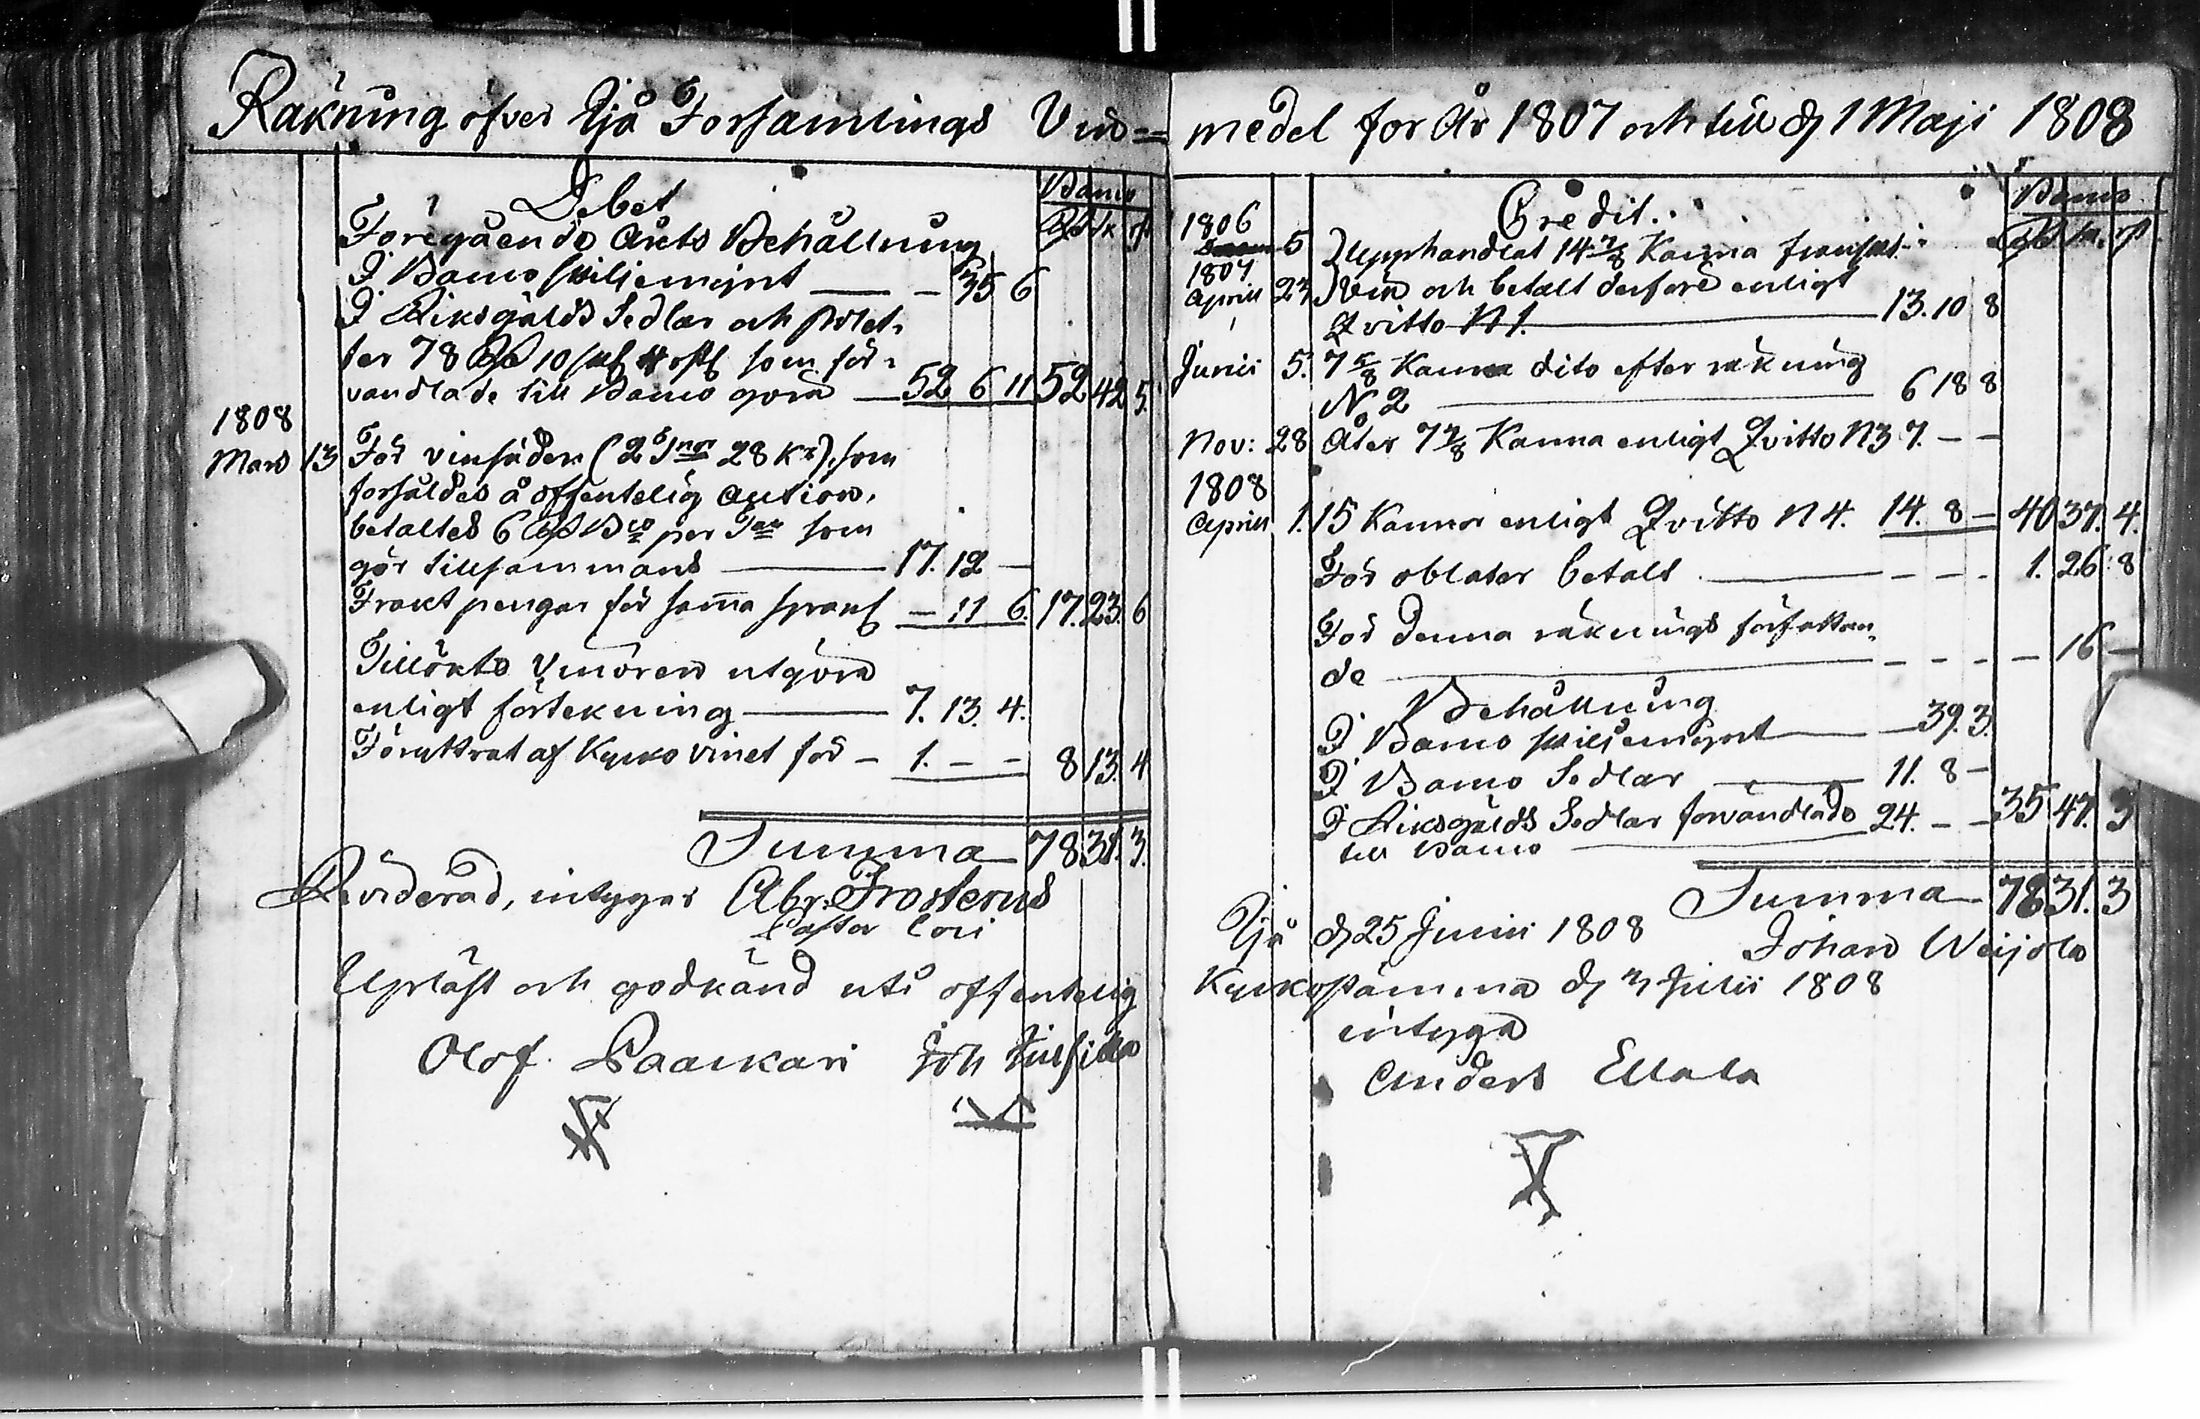 Räkning öfver Ijå Församlings Vin=
Debet
Banco
Rd sk rst
Föregående Årets Behållning
I Banco skiljemynt — — 35 6
I Riksgälds Sedlar och Pålet-
ter 78 Rd 10 sk 4 rst som för-
vandlade till Banco göra — 52 6 11 52 42 5.
1808
Mars 13 För vinsäden (2 Tnor 28 Kr), som
försåldes å offentelig Auction,
betaltes 6 Rd Bco per Tna som
gör tillsammans — 17. 12 —
Frakt pengar för samma spanl — 11 6. 17. 23. 6
Tillökte Vinören utgöra
enligt förtekning — 7. 13. 4.
Föryttrat af Kyrko vinet för — 1. — — 8 13. 4
Summa 78 31. 3.
Reviderad, intygar Abr. Frosterus
Pastor Loci
Upläst och godkänd uti offentelig
Olof Paakari Joh
medel för År 1807 och till d 1 Maji 1808
Credit.
Banco
Rd sk. rst
1806
5 Upphandlat 14 7/8 Kanna franskt
1807
Aprill 23 Vin och betalt derföre enligt
Qvitto N 1. — 13. 10 8
Junii 5. 7 5/8 Kanna dito efter räkning
No 2 — 6 18 8
Nov: 28 Åter 7 7/8 Kanna enligt Qvitto N 3 7. — —
1808
Aprill 1. 15 Kannor enligt Qvitto N 4. 14. 8 — 40 37. 4.
För oblater betalt — — — — 1. 26. 8
För denna räknings författan-
de — — — — — 16 —
Behållning
I Banco skiljemynt — 39. 3.
I Banco Sedlar — 11. 8 —
I Riksgälds Sedlar förvandlade 24. — — 35 47. 3
till Banco
Summa 78 31. 3
Ijå d 25 Junii 1808 Johan Weijola
Kyrkostämma d 3 Julii 1808
intyga
Anders Ellala